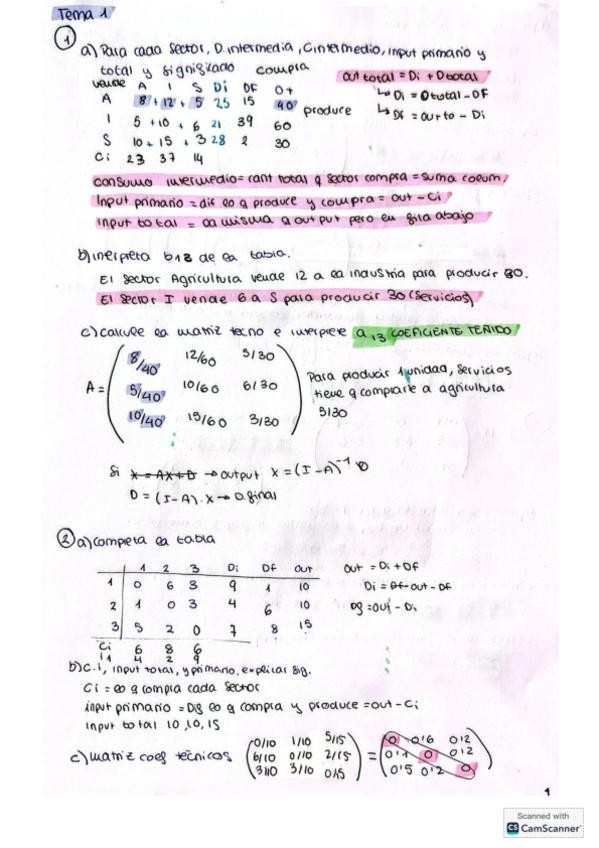 Tema 1
① a) Para cada sector, D. intermedia, C.intermedio, input primario y
total y significado
compra
vende A I S Di DF OT
A 8 + 12 + 5 25 15 40 produce
I 5 + 10 + 6 21 39 60
S 10 + 15 + 3 28 2 30
Ci 23 37 14
out total = Di + D total
↳ Di = Ototal - DF
↳ Df = - Di
consumo intermedio = cant total q sector compra = suma colum.
Input primario = dif lo q produce y compra = out - Ci
Input total = la misma q output pero en fila abajo
b) interpreta b12 de la tabla.
El sector Agricultura vende 12 a la industria para producir
El sector I vende 6 a S para producir 30 (servicios)
c) calcule la matriz tecno e interprete a13 COEFICIENTE TEÑIDO
A = ( 8/40 12/60 5/30
5/40 10/60 6/30
10/40 15/60 3/30 )
Para producir 1 unidad, servicios
tiene q comprarle a agricultura
5/30
Si x = AX + D → output x = (I - A)⁻¹ D
D = (I - A) . X → D.final
② a) completa la tabla
1 2 3 Di Df out
1 0 6 3 9 1 10
2 1 0 3 4 6 10
3 5 2 0 7 8 15
Ci 6 8 6
4 2 9
out = Di + Df
Di = Df out - DF
Df = out - Di
b) c.i, input total, y primario, explicar sig.
Ci = lo q compra cada sector
input primario = Dif lo q compra y produce = out - Ci
input total 10, 10, 15
c) matriz coef técnicos ( 0/10 1/10 5/15
6/10 0/10 2/15
3/10 3/10 0/15 ) = ( 0 0'6 0'2
0'1 0 0'2
0'5 0'2 0 )
1
Scanned with
CS CamScanner